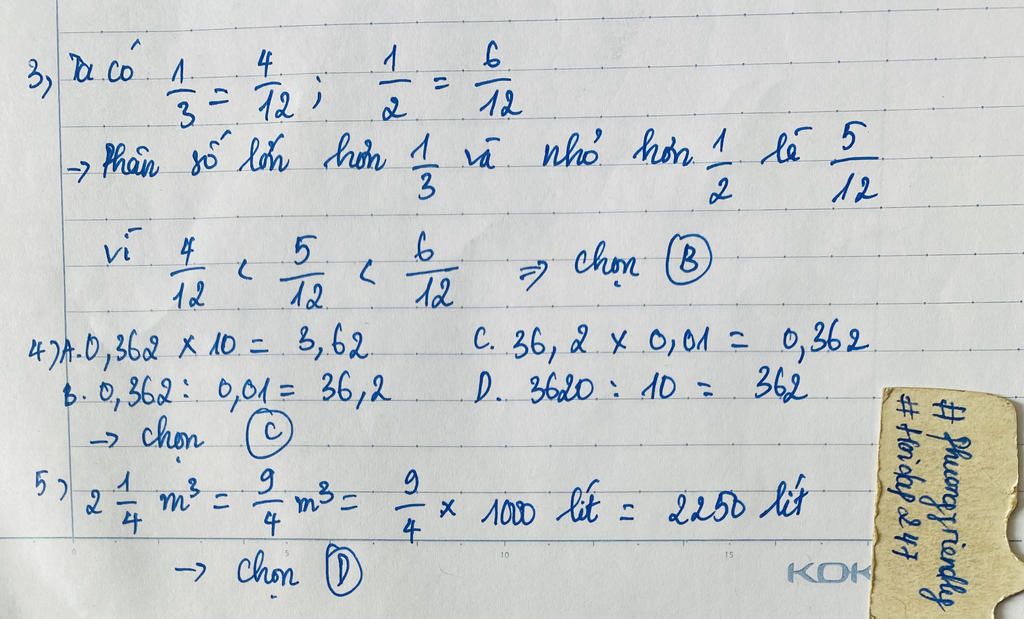 3, Ta có 1/3 = 4/12 ; 1/2 = 6/12
→ Phân số lớn hơn 1/3 và nhỏ hơn 1/2 là 5/12
vì 4/12 < 5/12 < 6/12 ⇒ chọn B
4) A. 0,362 × 10 = 3,62 C. 36,2 × 0,01 = 0,362
B. 0,362 : 0,01 = 36,2 D. 3620 : 10 = 362
→ chọn C
5) 2 1/4 m³ = 9/4 m³ = 9/4 × 1000 lít = 2250 lít
→ chọn D
0 5 10 15
KOK
# phuongfriendly
# Hoidap247